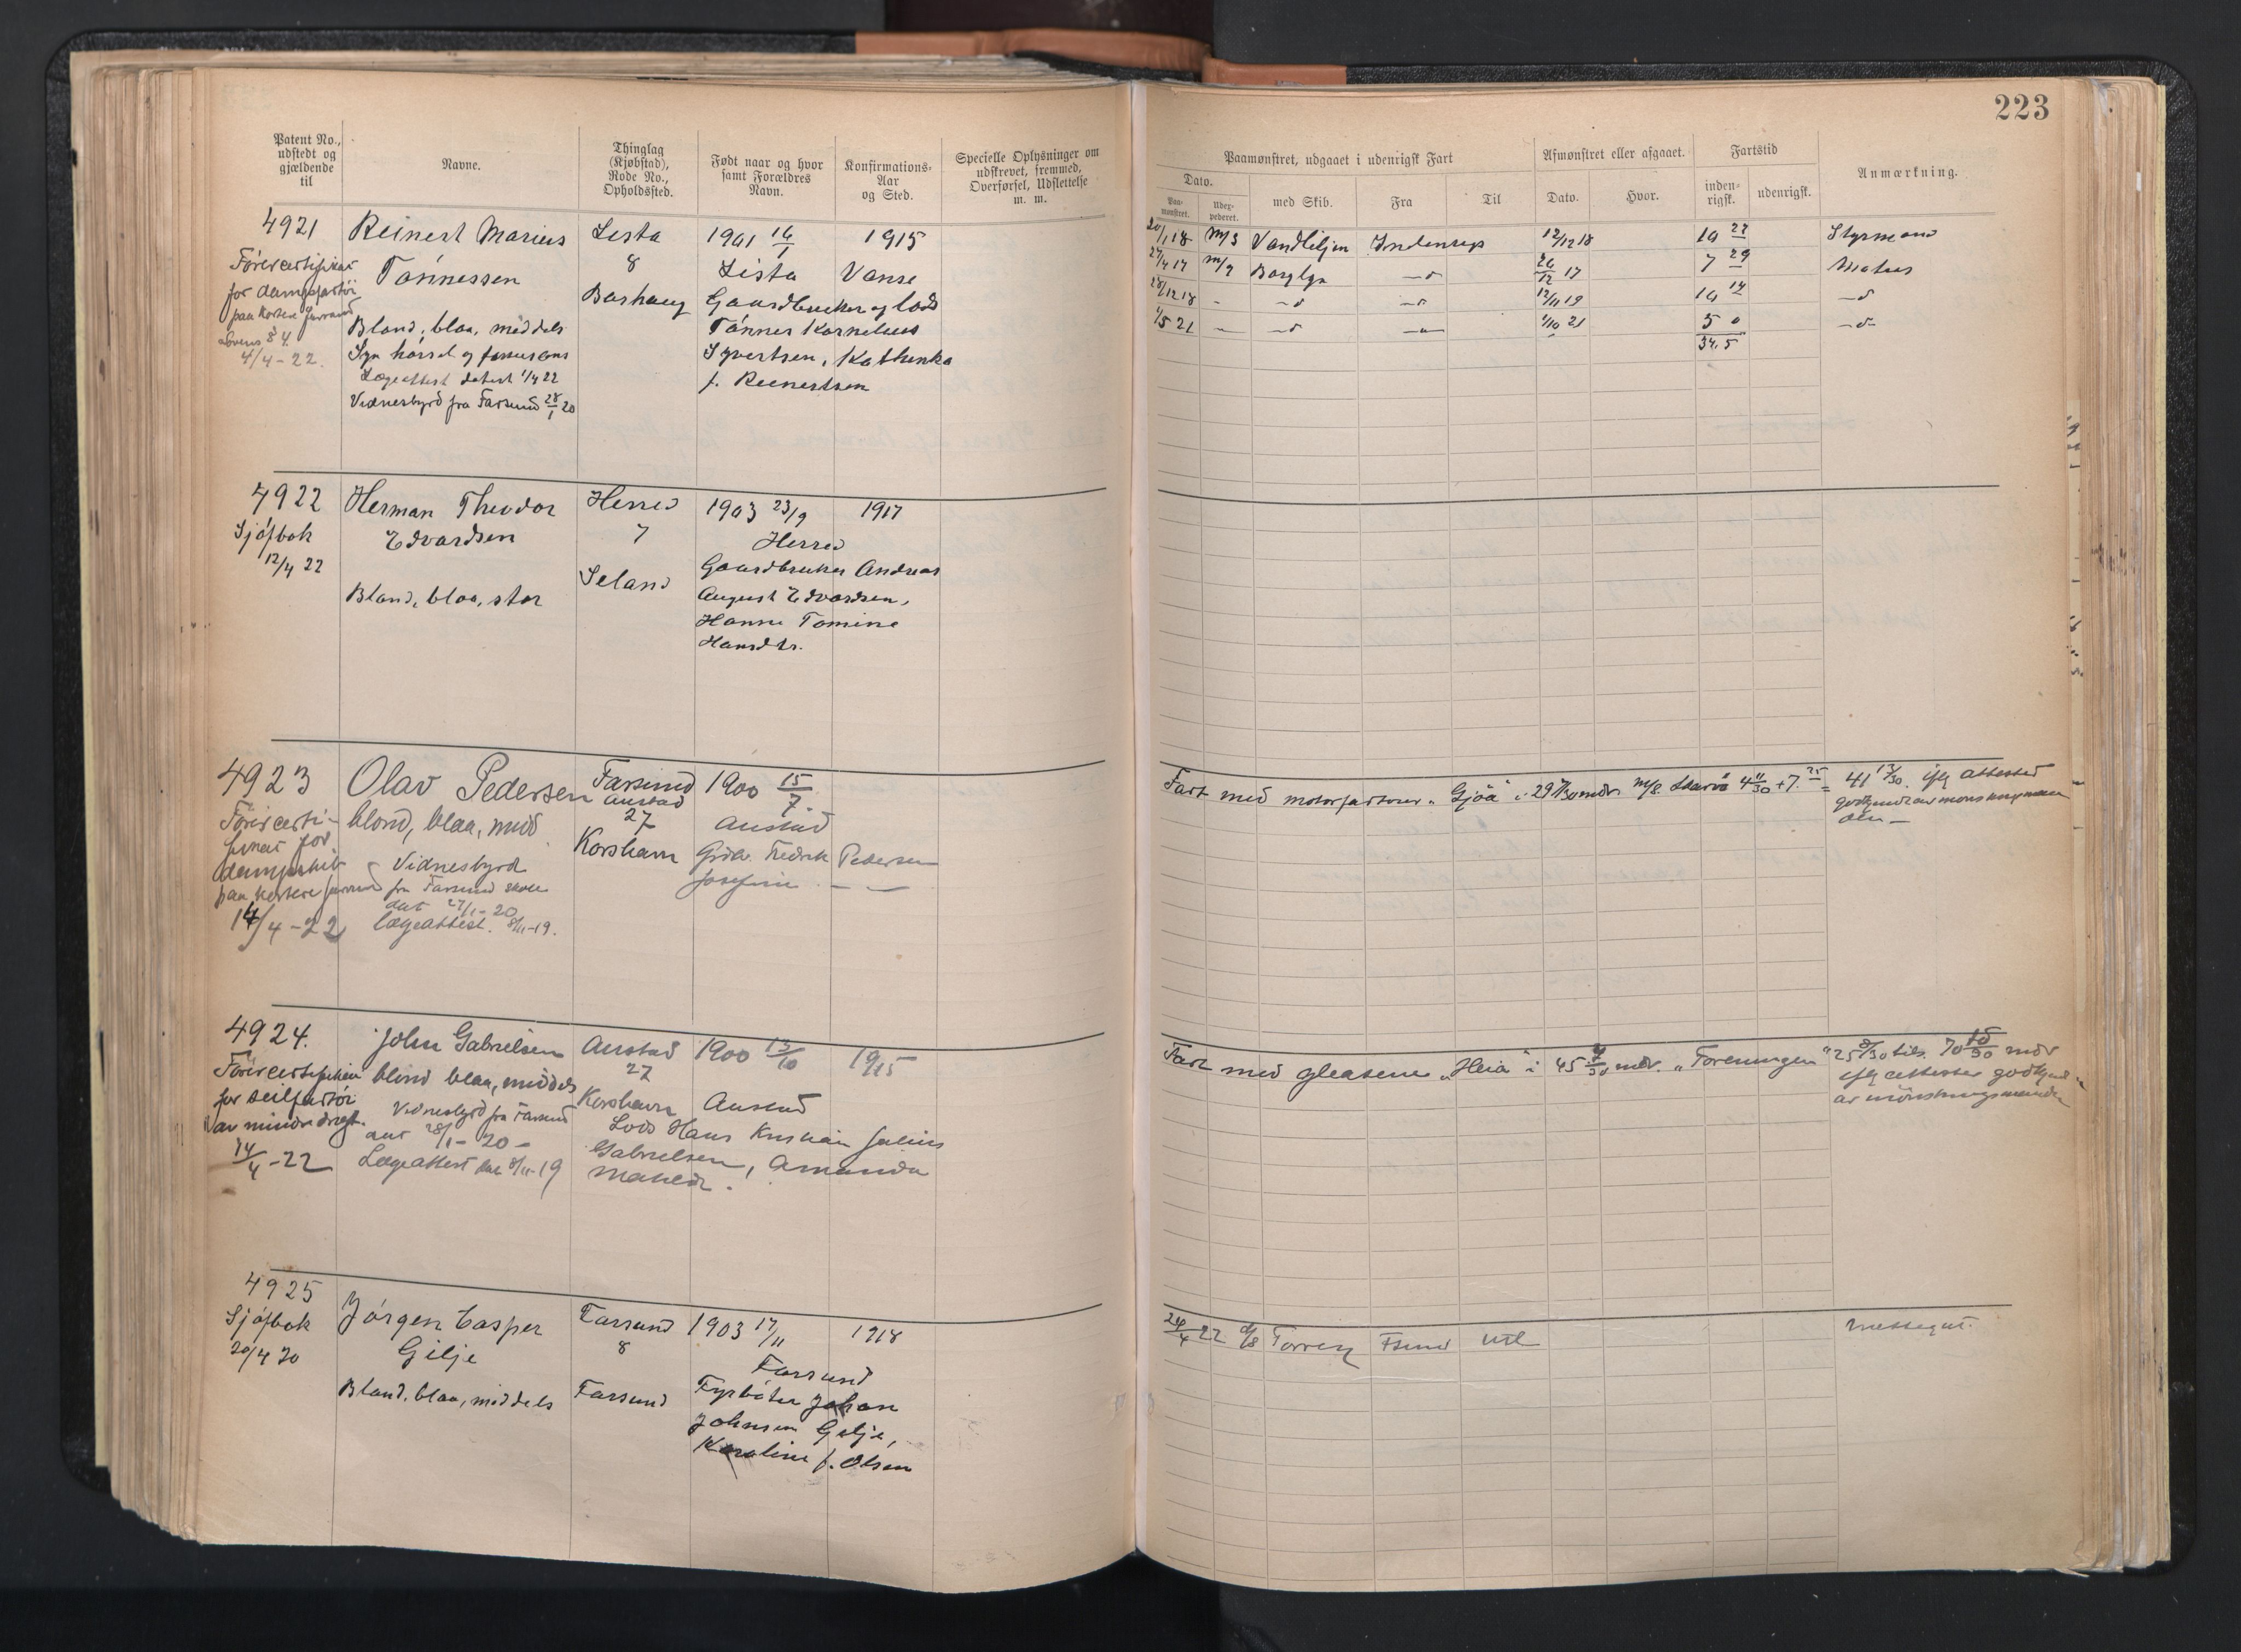 223
Patent No., udstedt og gjældende til
Navne.
Thinglag (Kjøbstad), Rode No., Opholdssted.
Født naar og hvor samt Forældres Navn.
Konfirmations-Aar og Sted.
Specielle Oplysninger om udskrevet, fremmed, Overførsel, Udslettelse m. m.
Paamønstret, udgaaet i udenrigsk Fart
Afmønstret eller afgaaet.
Fartstid
Anmærkning.
Dato.
Paa-mønstret.
Udex-pederet.
med Skib.
Fra
Til
Dato.
Hvor.
inden-rigsk.
udenrigsk.
4921
Førercertifikat
for dampfartøi
paa kortere farvand
Lovens § 4.
4/4-22.
Reinert Marius
Tønnessen
Blond, blaa, middels
Syn hørsel og farvesans
Lægeattest datert 1/4 22
Vidnesbyrd fra Farsund 28/1 20
Lista
8
Borhaug
1901 16/1
Lista
Gaardbruker og lods
Tønnes Kornelius
Syvertsen, Kathinka
f. Reinertsen
1915
Vanse
20/1 18 m/s Vandliljen Indenrigs 12/12 18 10 22 Styrmand
27/4 17 m/s Borglyn —"— 26/12 17 7 29 Matros
28/12 18 - —"— —"— 12/11 19 10 14 —"—
1/5 21 - —"— —"— 1/10 21 5 0 —"—
34.5
4922
Sjøfbok
12/4 22
Herman Theodor
Edvardsen
Blond, blaa, stor
Herred
7
Seland
1903 23/9
Herred
Gaardbruker Andreas
August Edvardsen,
Hanne Tomine
Hansdtr.
1917
4923
Førercerti-
fikat for
dampskib
paa kortere farvand
14/4-22
Olav Pedersen
blond, blaa, midd
Vidnesbyrd
fra Farsund skole
dat 27/1-20
lægeattest. 8/11-19.
Farsund
Austad
27
Korshavn
1900 15/7.
Austad
Grdbr. Fredrik Pedersen
Josefine — —
Fart med motorfartøier "Gjøa" i 29 mdr. m/s. 4 11/30 + 7. 25 = 41 13/30. iflg attester
godkjendt av mønstringsman
den —
4924.
Førercertifikat
for seilfartøi
av mindre drægt.
14/4-22
John Gabrielsen
blond blaa, middels
Vidnesbyrd fra Farsund
dat 28/1-20-
Lægeattest dat 8/11-19
Austad
27
Korshavn
1900 13/10
Austad
Lods Hans Kristian Julius
Gabrielsen, Amanda
19/15
Fart med galeasene "Heia" i 45 mdr. "Foreningen" 25 tils. 70 mdr
iflg attester godkjend
av mönstringsmanden
4925
Sjøfbok
20/4 20
Jørgen Casper
Gilje
Blond, blaa, middels
Farsund
8
Farsund
1903 17/11
Farsund
Fyrbøter Johan
Johnsen Gilje,
Karoline f. Olsen
1918
24/4 22 d/s Torrey Fsund Utl Messegut.